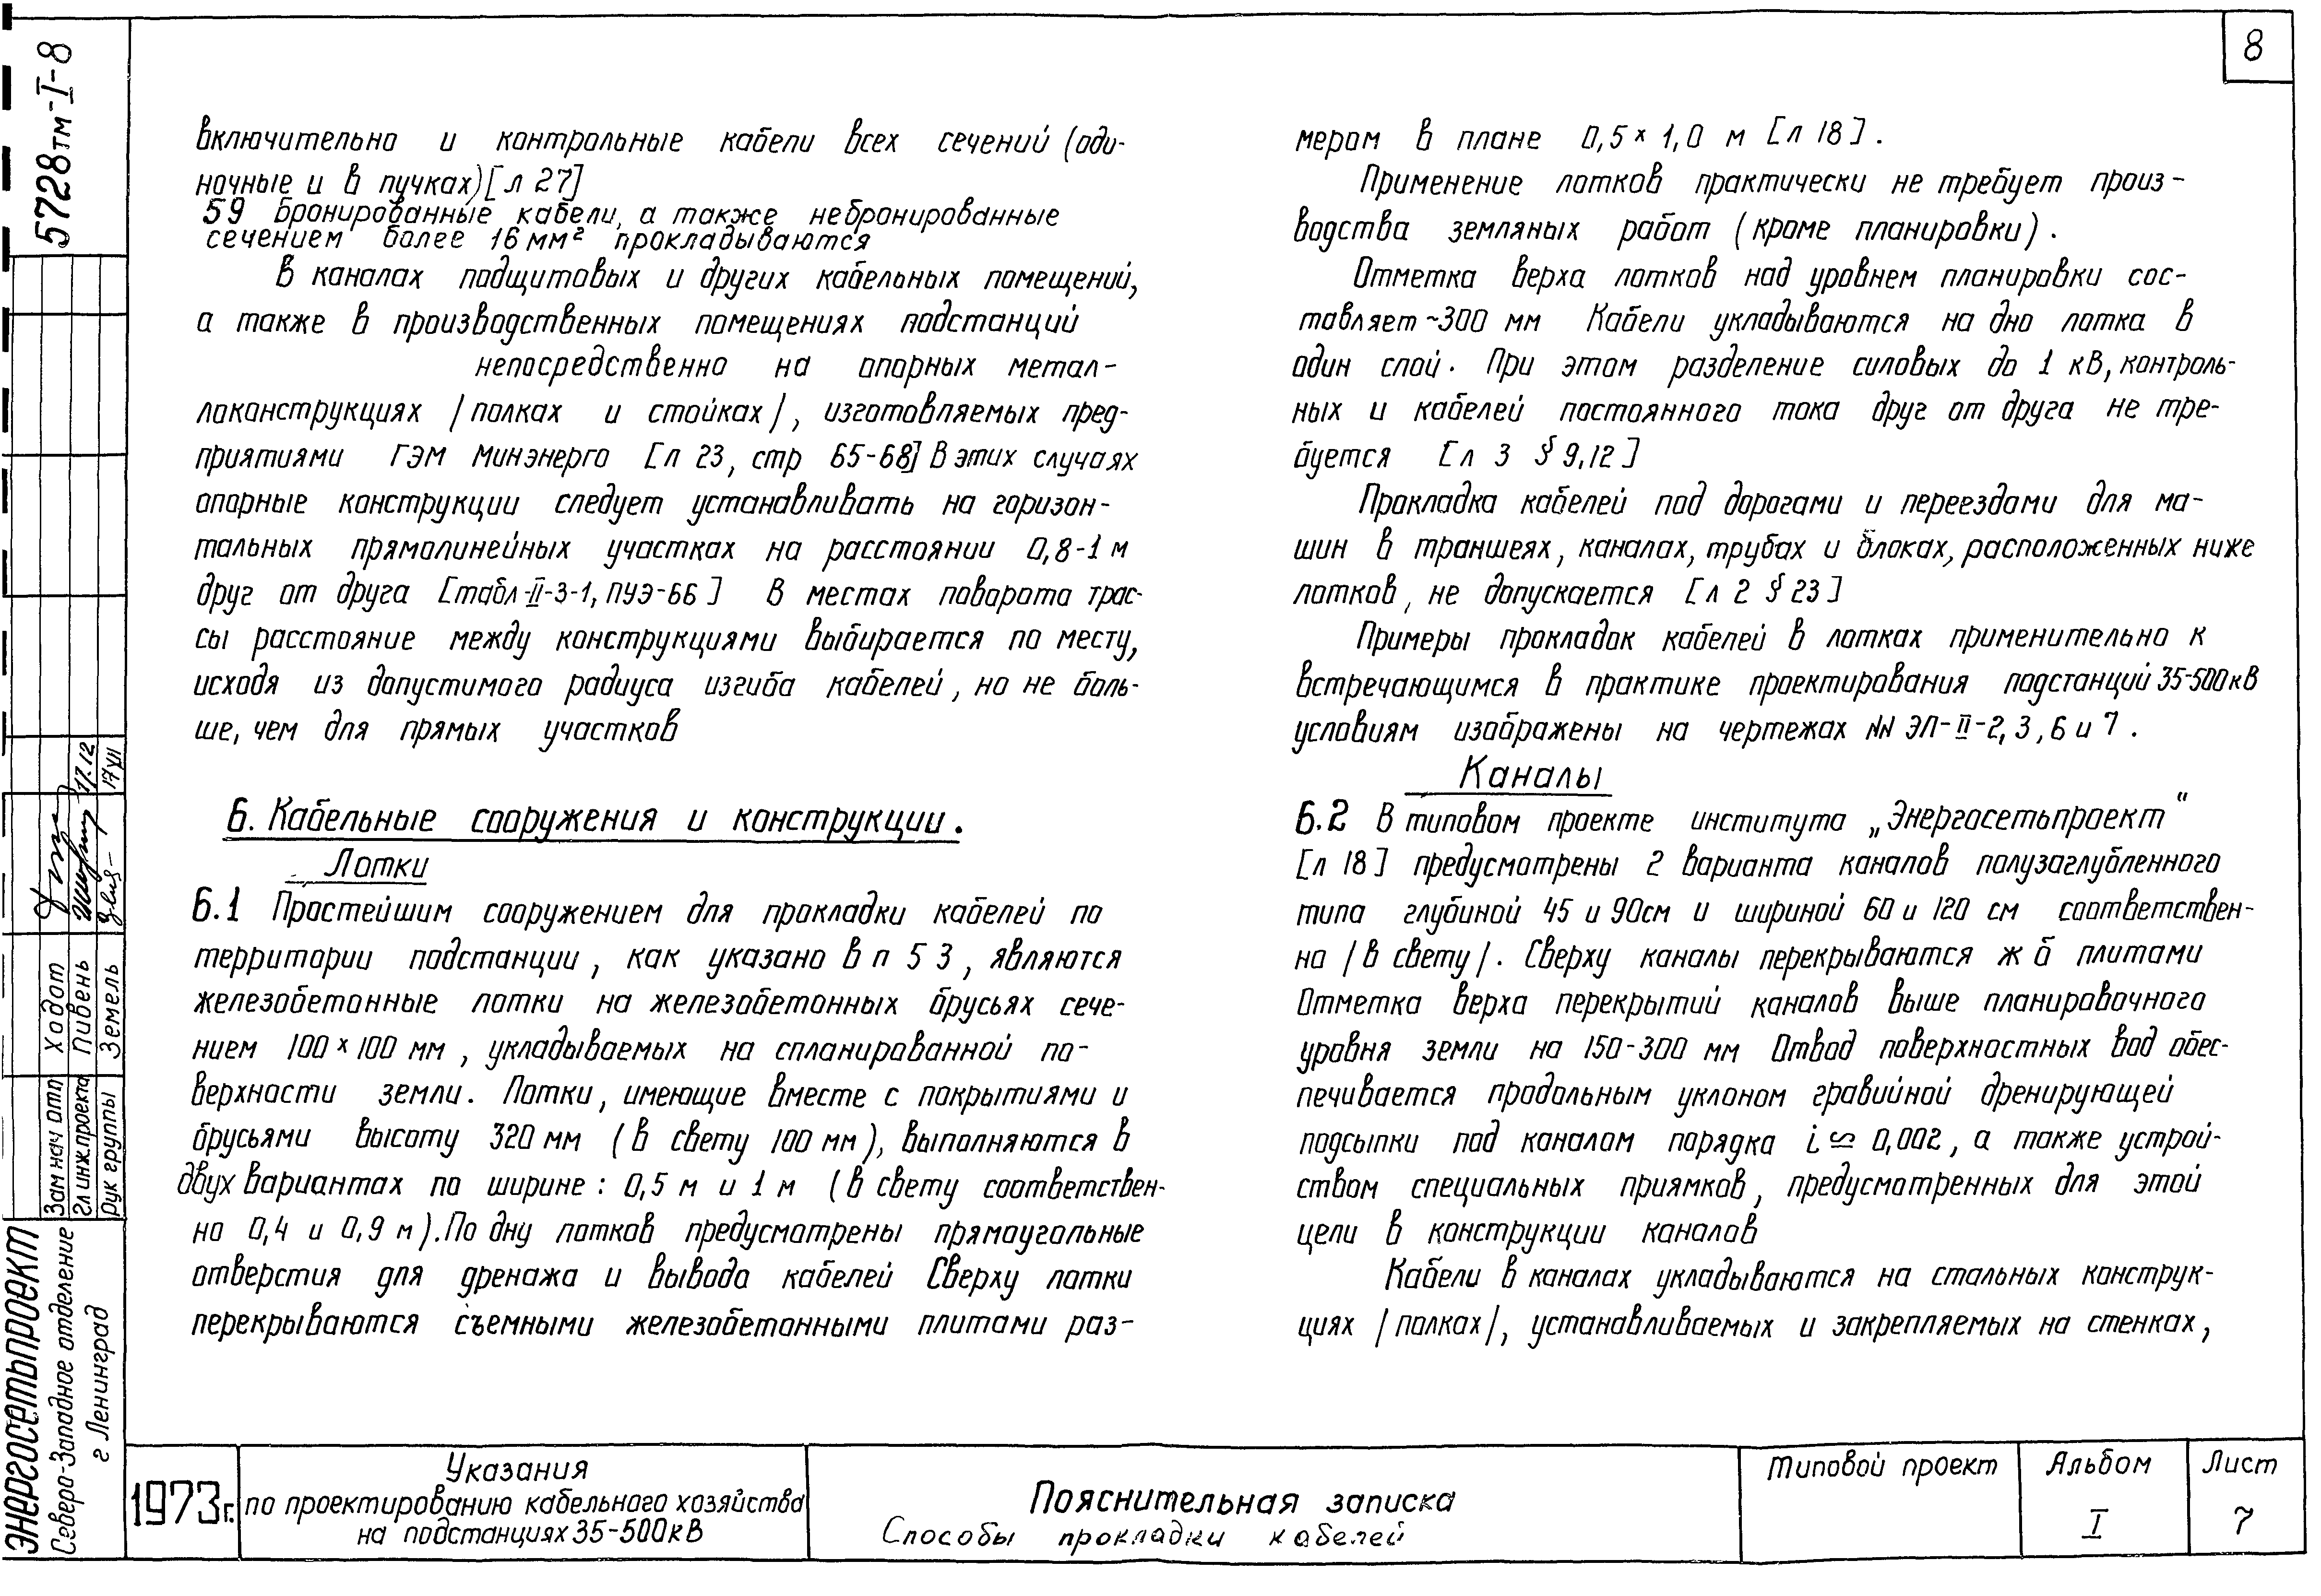 8
5728тм-I-8
включительно и контрольные кабели всех сечений (оди-
ночные и в пучках)[л 27]
59 Бронированные кабели, а также небронированные
сечением более 16 мм² прокладываются
в каналах подщитовых и других кабельных помещений,
а также в производственных помещениях подстанций
непосредственно на опорных метал-
локонструкциях /полках и стойках/, изготовляемых пред-
приятиями ГЭМ Минэнерго [л 23, стр 65-68] В этих случаях
опорные конструкции следует устанавливать на горизон-
тальных прямолинейных участках на расстоянии 0,8-1 м
друг от друга [табл-II-3-1, ПУЭ-66] В местах поворота трас-
сы расстояние между конструкциями выбирается по месту,
исходя из допустимого радиуса изгиба кабелей, но не боль-
ше, чем для прямых участков
6. Кабельные сооружения и конструкции.
Лотки
6.1 Простейшим сооружением для прокладки кабелей по
территории подстанции, как указано в п 5 3, являются
железобетонные лотки на железобетонных брусьях сече-
нием 100 × 100 мм, укладываемых на спланированной по-
верхности земли. Лотки, имеющие вместе с покрытиями и
брусьями высоту 320 мм (в свету 100 мм), выполняются в
двух вариантах по ширине: 0,5 м и 1 м (в свету соответствен-
но 0,4 и 0,9 м). По дну лотков предусмотрены прямоугольные
отверстия для дренажа и вывода кабелей Сверху лотки
перекрываются съемными железобетонными плитами раз-
мером в плане 0,5 × 1,0 м [л 18].
Применение лотков практически не требует произ-
водства земляных работ (кроме планировки).
Отметка верха лотков над уровнем планировки сос-
тавляет ~300 мм Кабели укладываются на дно лотка в
один слой. При этом разделение силовых до 1 кВ, контроль-
ных и кабелей постоянного тока друг от друга не тре-
буется [л 3 § 9,12]
Прокладка кабелей под дорогами и переездами для ма-
шин в траншеях, каналах, трубах и блоках, расположенных ниже
лотков, не допускается [л 2 § 23]
Примеры прокладок кабелей в лотках применительно к
встречающимся в практике проектирования подстанций 35-500 кВ
условиям изображены на чертежах NN ЭП-II-2, 3, 6 и 7.
Каналы
6.2 В типовом проекте института „Энергосетьпроект“
[л 18] предусмотрены 2 варианта каналов полузаглубленного
типа глубиной 45 и 90см и шириной 60 и 120 см соответствен-
но /в свету/. Сверху каналы перекрываются ж б плитами
Отметка верха перекрытий каналов выше планировочного
уровня земли на 150-300 мм Отвод поверхностных вод обес-
печивается продольным уклоном гравийной дренирующей
подсыпки под каналом порядка i ≈ 0,002, а также устрой-
ством специальных приямков, предусмотренных для этой
цели в конструкции каналов
Кабели в каналах укладываются на стальных конструк-
циях /полках/, устанавливаемых и закрепляемых на стенках,
17.12
17 VII
Зам нач отп Ходот
Гл инж.проекта Пивень
Рук группы Земель
ЭНЕРГОСЕТЬПРОЕКТ
Северо-Западное отделение
г Ленинград
1973г.
Указания
по проектированию кабельного хозяйства
на подстанциях 35-500кВ
Пояснительная записка
Способы прокладки кабелей
Типовой проект
Альбом
I
Лист
7